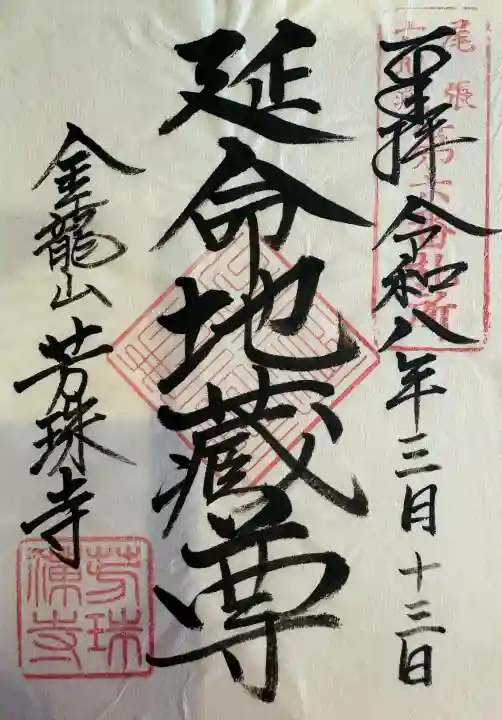 奉拝 令和八年三月十三日
尾張
第六番札所
延命地蔵尊
金龍山 芳珠寺
芳珠寺